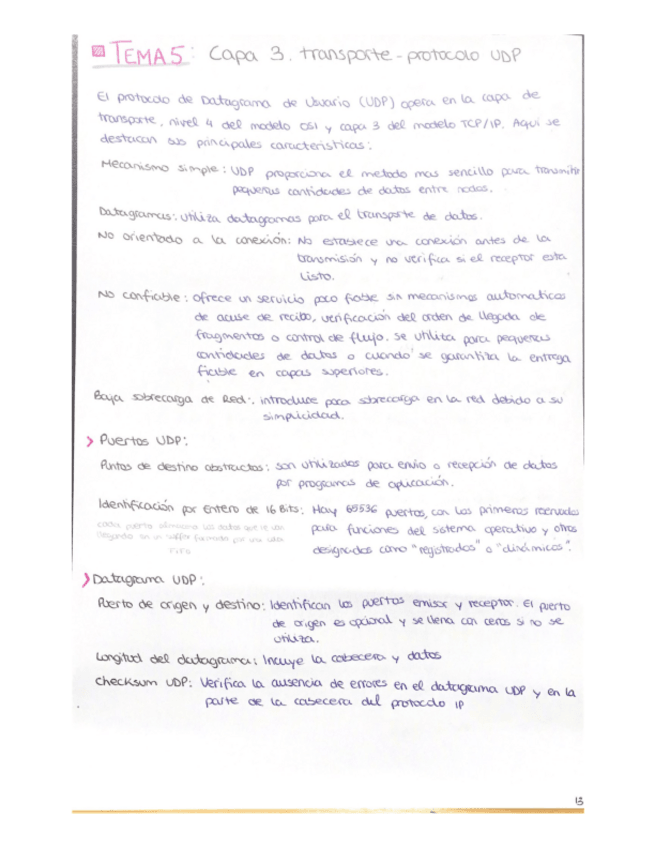 TEMA 5: Capa 3. transporte - protocolo UDP
El protocolo de Datagrama de Usuario (UDP) opera en la capa de
transporte, nivel 4 del modelo OSI y capa 3 del modelo TCP/IP. Aquí se
destacan sus principales características:
Mecanismo simple: UDP proporciona el metodo mas sencillo para transmitir
pequeñas cantidades de datos entre nodos.
Datagramas: utiliza datagramas para el transporte de datos.
No orientado a la conexión: No establece una conexión antes de la
transmisión y no verifica si el receptor esta
listo.
No confiable: ofrece un servicio poco fiable sin mecanismos automaticos
de acuse de recibo, verificación del orden de llegada de
fragmentos o control de flujo. se utiliza para pequeñas
cantidades de datos o cuando se garantiza la entrega
fiable en capas superiores.
Baja sobrecarga de Red: introduce poca sobrecarga en la red debido a su
simplicidad.
> Puertos UDP:
Puntos de destino abstractos: son utilizados para envio o recepción de datos
por programas de aplicación.
Identificación por Entero de 16 Bits: Hay 65536 puertos, con los primeros reservados
para funciones del sistema operativo y otros
designados como "registrados" o "dinámicos".
cada puerto almacena los datos que le van
llegando en un buffer formado por una cola
FIFO
> Datagrama UDP:
Puerto de origen y destino: Identifican los puertos emisor y receptor. El puerto
de origen es opcional y se llena con ceros si no se
utiliza.
Longitud del datagrama: Incluye la cabecera y datos
checksum UDP: Verifica la ausencia de errores en el datagrama UDP y en la
parte de la cabecera del protocolo IP
13